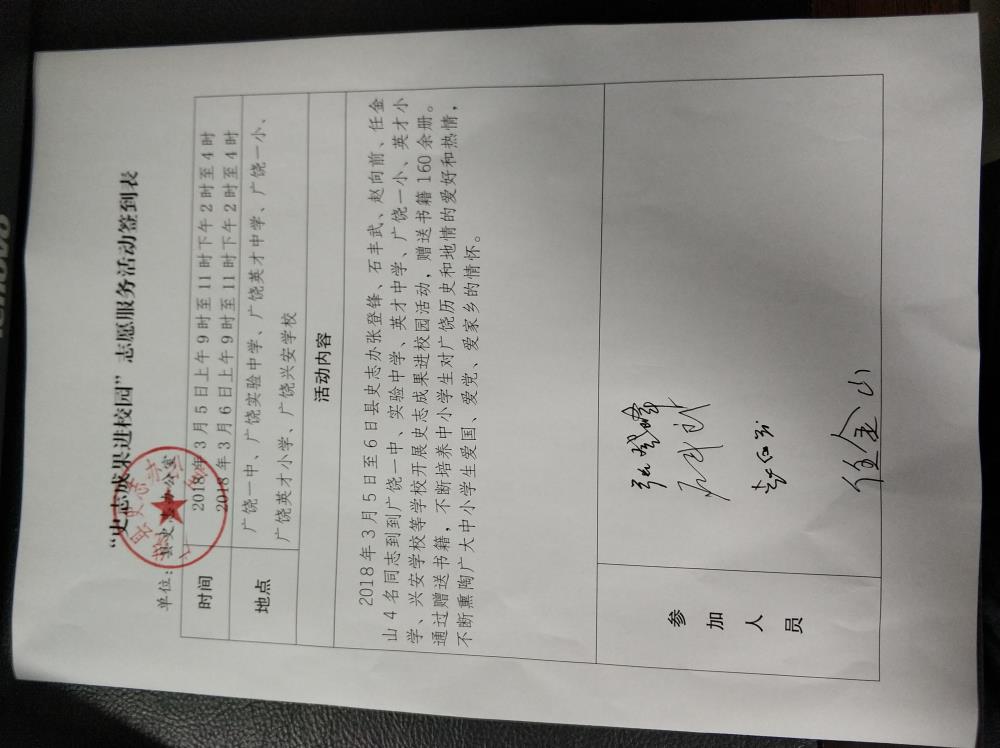 “史志成果进校园”志愿服务活动签到表
单位：县史志办公室
时间
2018年3月5日上午9时至11时下午2时至4时
2018年3月6日上午9时至11时下午2时至4时
地点
广饶一中、广饶实验中学、广饶英才中学、广饶一小、
广饶英才小学、广饶兴安学校
活动内容
2018年3月5日至6日县史志办张登锋、石丰武、赵向前、任金
山4名同志到到广饶一中、实验中学、英才中学、广饶一小、英才小
学、兴安学校等学校开展史志成果进校园活动，赠送书籍160余册。
通过赠送书籍，不断培养中小学生对广饶历史和地情的爱好和热情，
不断熏陶广大中小学生爱国、爱党、爱家乡的情怀。
参加人员
张登峰
石丰武
赵向前
任金山